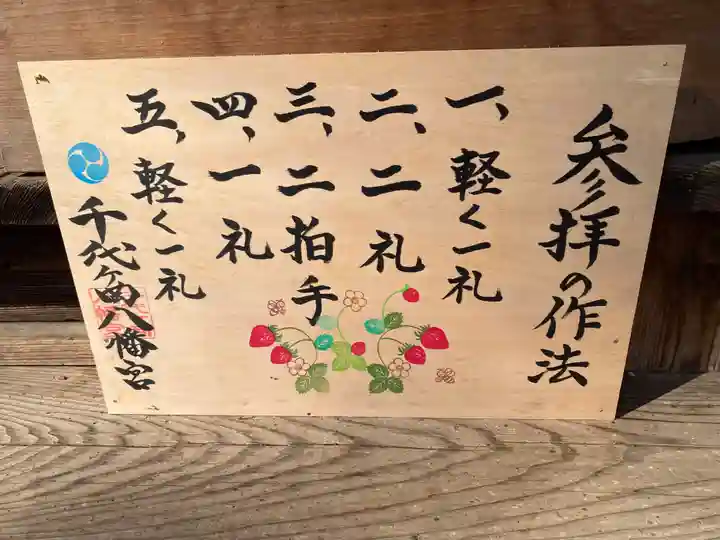 参拝の作法
一、軽く一礼
二、二礼
三、二拍手
四、一礼
五、軽く一礼
千代ケ岡八幡宮